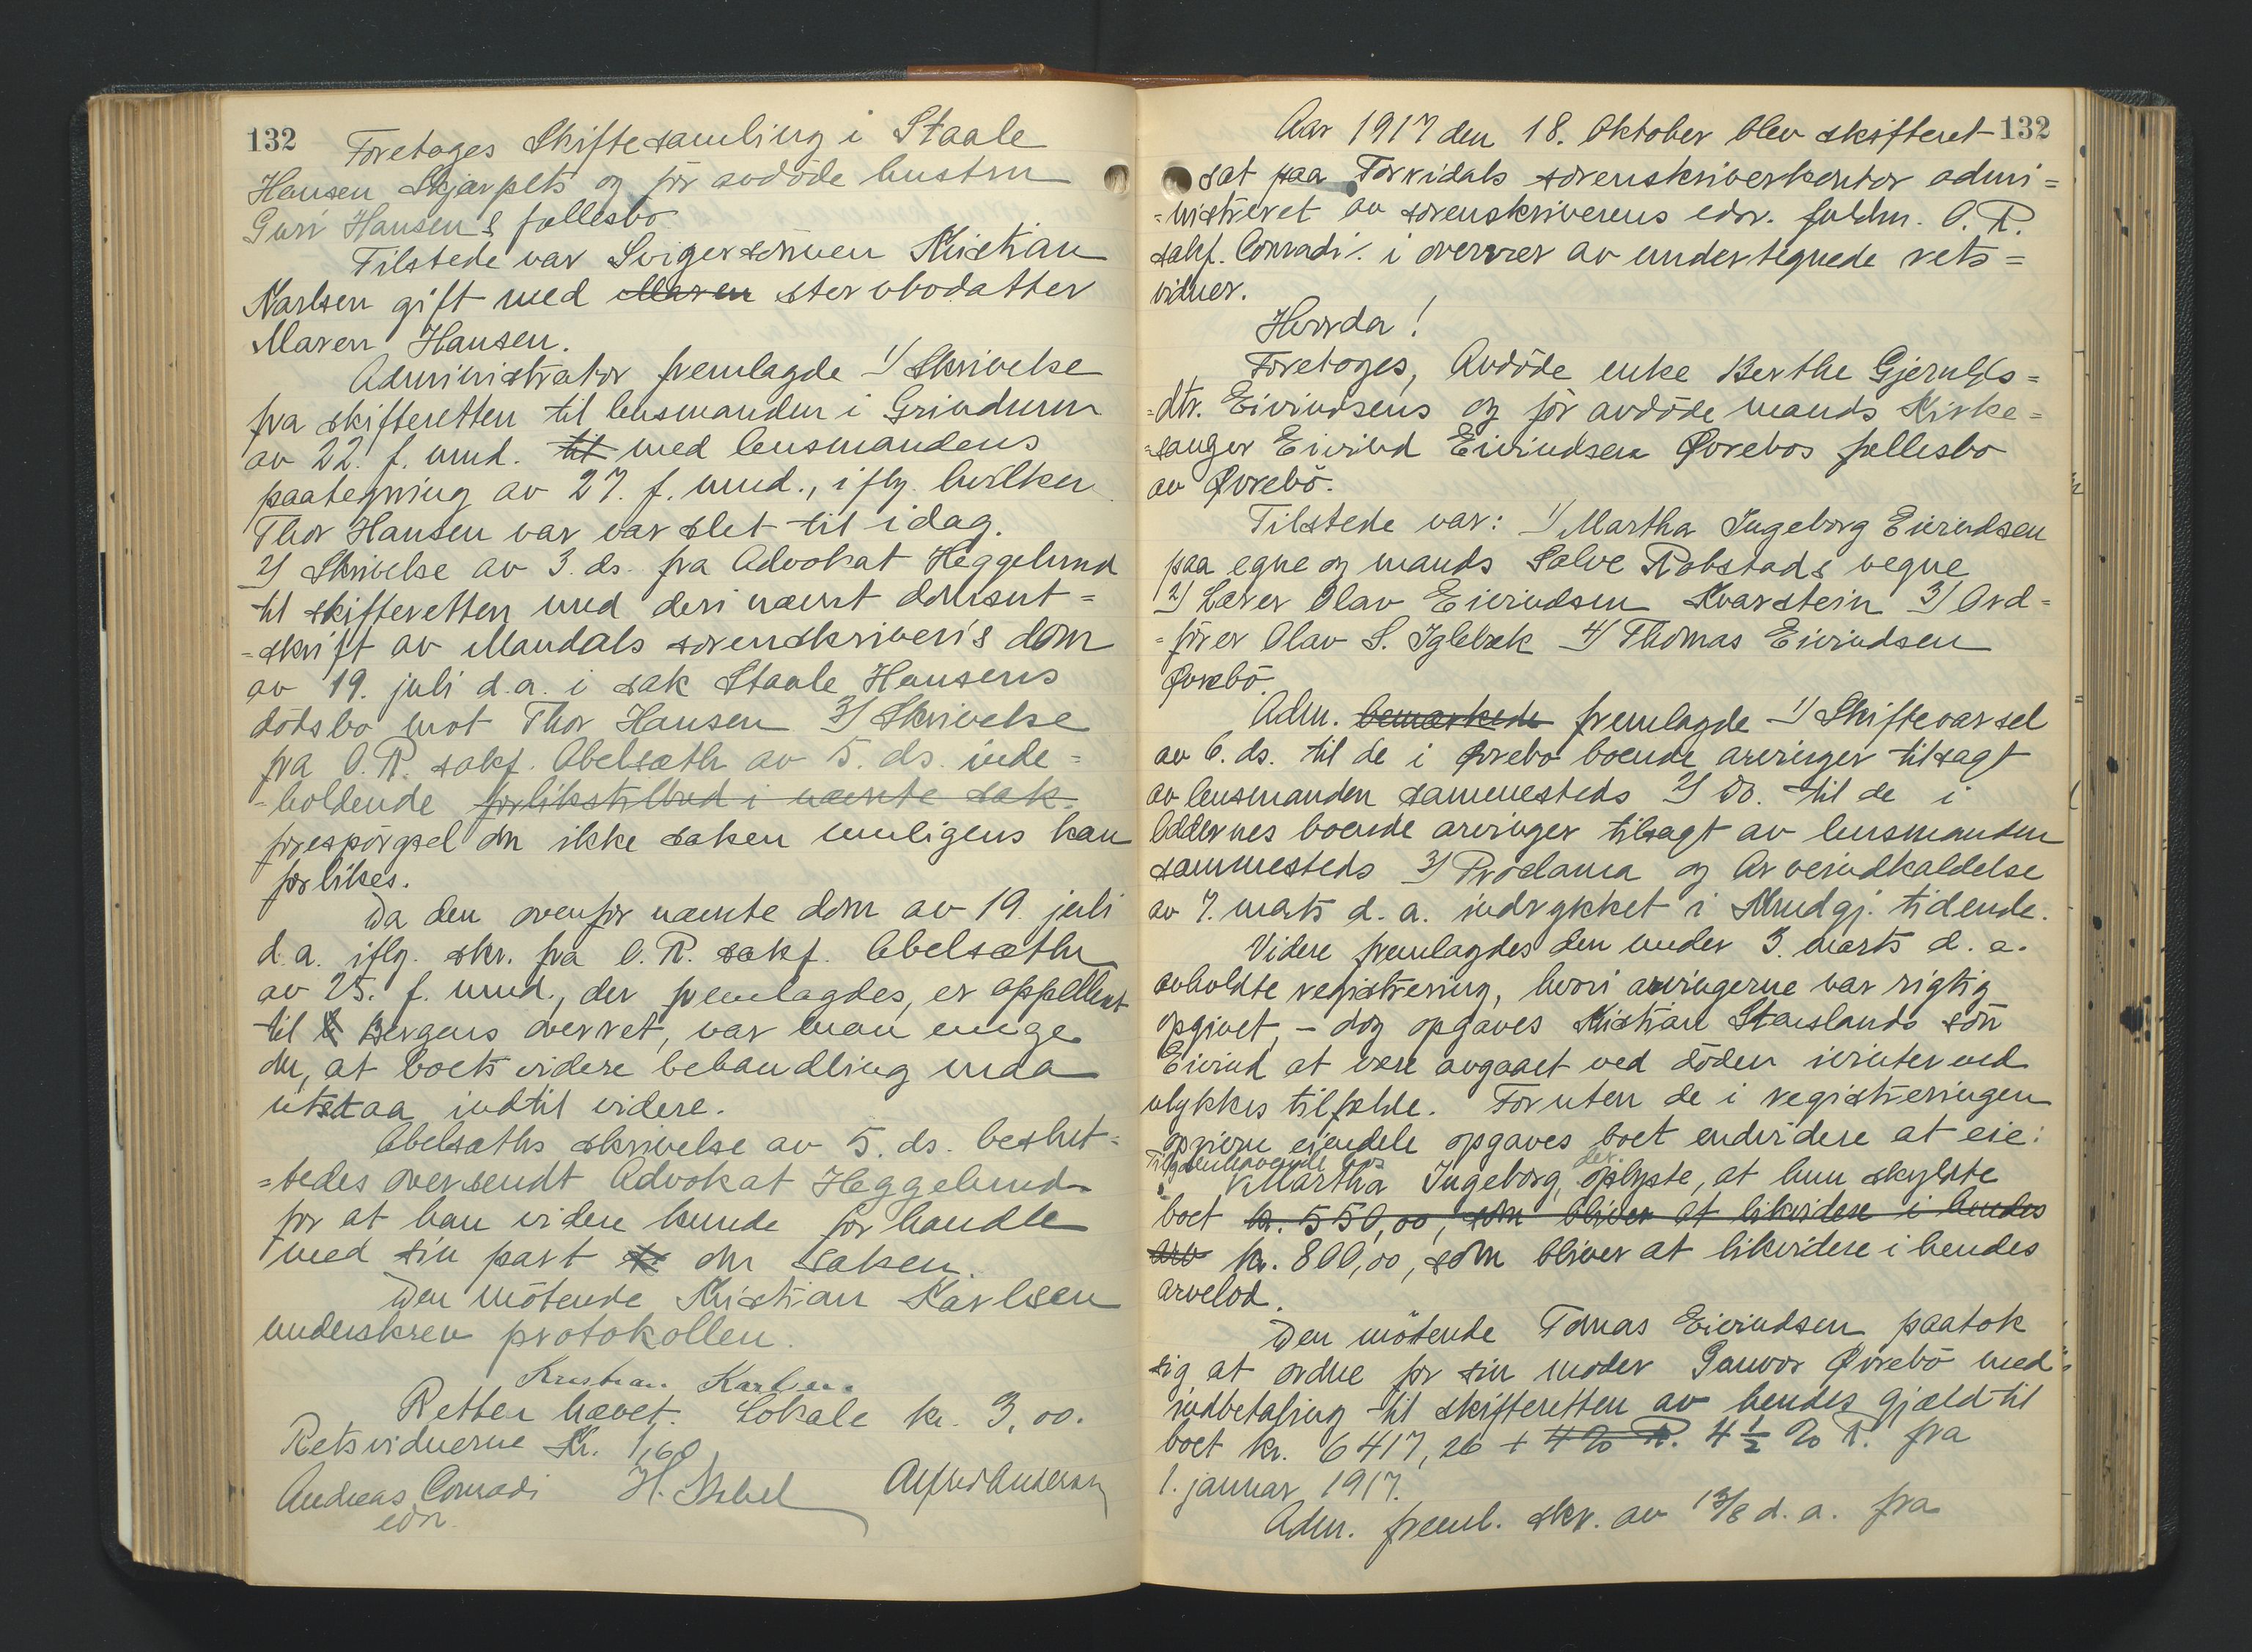 132
Foretoges Skiftesamling i Staale
Hansen Skjærplets og før avdöde hustru
Guri Hansens fællesbo
Tilstede var Svigersönnen Kristian
Karlsen gift med Maren stervbodatter
Maren Hansen.
Administrator fremlagde 1/ Skrivelse
fra skifteretten til lensmanden i Grindum
av 22. f. mnd. til med lensmandens
paategning av 27. f. mnd., iflg. hvilken
Thor Hansen var varslet til idag.
2/ Skrivelse av 3. ds. fra Advokat Heggelund
til skifteretten med deri nævnt domsut=
=skrift av Mandals sorenskriveris dom
av 19. juli d.a. i sak Staale Hansens
dödsbo mot Thor Hansen 3/ Skrivelse
fra O.R. sakf. Abelsæth av 5. ds. inde=
=holdende forlikstilbud i nævnte sak.
forespörgsel om ikke saken muligens kan
forlikes.
Da den ovenfor nævnte dom av 19. juli
d.a. iflg. skr. fra O.R. sakf. Abelsæth
av 25. f. mnd., der fremlagdes, er appellert
til Bergens overret, var man enige
om, at boets videre behandling maa
utstaa indtil videre.
Abelsæths skrivelse av 5. ds. beslut=
=tedes oversendt Advokat Heggelund
for at han videre kunde forhandle
med sin part om saken.
Den mötende Kristian Karlsen
underskrev protokollen.
Kristian Karlsen
Retten hævet. Lokale kr. 3,00.
Retsvidnerne Kr. 1,60
Andreas Conradi H. Stebel Alfred Andersen
edv.
132
Aar 1917 den 18. Oktober blev skifteret
sat paa Torridals sorenskriverkontor admi=
=nistreret av sorenskriverens edsv. fuldm. O.R.
sakf. Conradi i overvær av undertegnede rets=
vidner.
Hvorda!
Foretoges, Avdöde enke Berthe Gjerulfs=
=dtr. Eivindsens og før avdöde mands Kirke=
=sanger Eivind Eivindsen Øvrebos fællesbo
av Øvrebö.
Tilstede var: 1/ Martha Ingeborg Eivindsen
paa egne og mands Salve Robstads vegne
2/ Lærer Olav Eivindsen Kvarstein 3/ Ord=
=förer Olav S. Iglebæk 4/ Thomas Eivindsen
Øvrebö.
Adm. bemærkede fremlagde 1/ Skiftevarsel
av 6. ds. til de i Øvrebo boende arvinger tilsagt
av lensmanden sammesteds 2/ Do. til de i
Oddernes boende arvinger tilsagt av lensmanden
sammesteds 3/ Proclama og Arveindkaldelse
av 7. mars d.a. indrykket i Kundgj. tidende.
Videre fremlagdes den under 3. marts d.a.
avholdte registrering, hvori arvingerne var rigtig
opgivet, – dog opgaves Kristian Stenslands sön
Eivind at være avgaaet ved döden ivinter ved
ulykkes tilfælde. Foruten de i registreringen
opgivne eiendele opgaves boet endvidere at eie:
Tilgodehavende hos
Martha Ingeborg, der oplyste, at hun skyldte
boet kr. 550,00, som bliver at likvidere i hendes
arv kr. 800,00, som bliver at likvidere i hendes
arvelod.
Den mötende Tomas Eivindsen paatok
sig at ordne for sin moder Gunvor Øvrebö med
indbetaling til skifteretten av hendes gjæld til
boet kr. 6417,26 + 4 % R. 4 1/2 % R. fra
1. januar 1917.
Adm. freml. skr. av 13/8 d.a. fra